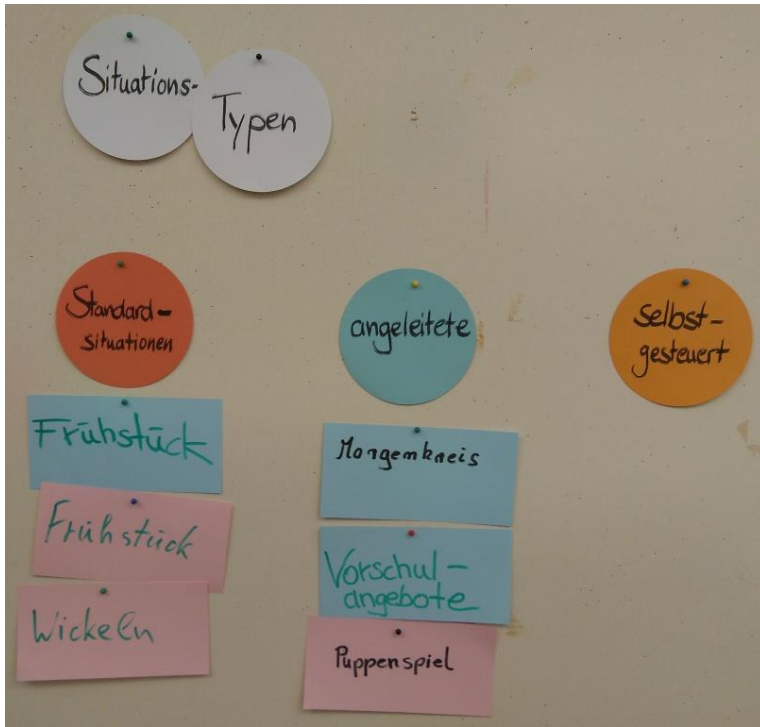 Situations-
Typen
Standard-
situationen
Frühstück
Frühstück
Wickeln
angeleitete
Morgenkreis
Vorschul-
angebote
Puppenspiel
selbst-
gesteuert